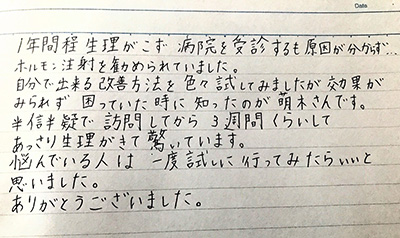 Date
1年間程生理がこず 病院を受診するも原因が分からず…
ホルモン注射を勧められていました。
自分で出来る改善方法を色々試してみましたが効果が
みられず 困っていた時に知ったのが萌木さんです。
半信半疑で訪問してから3週間くらいして
あっさり生理がきて驚いています。
悩んでいる人は 一度試しに行ってみたらいいと
思いました。
ありがとうございました。